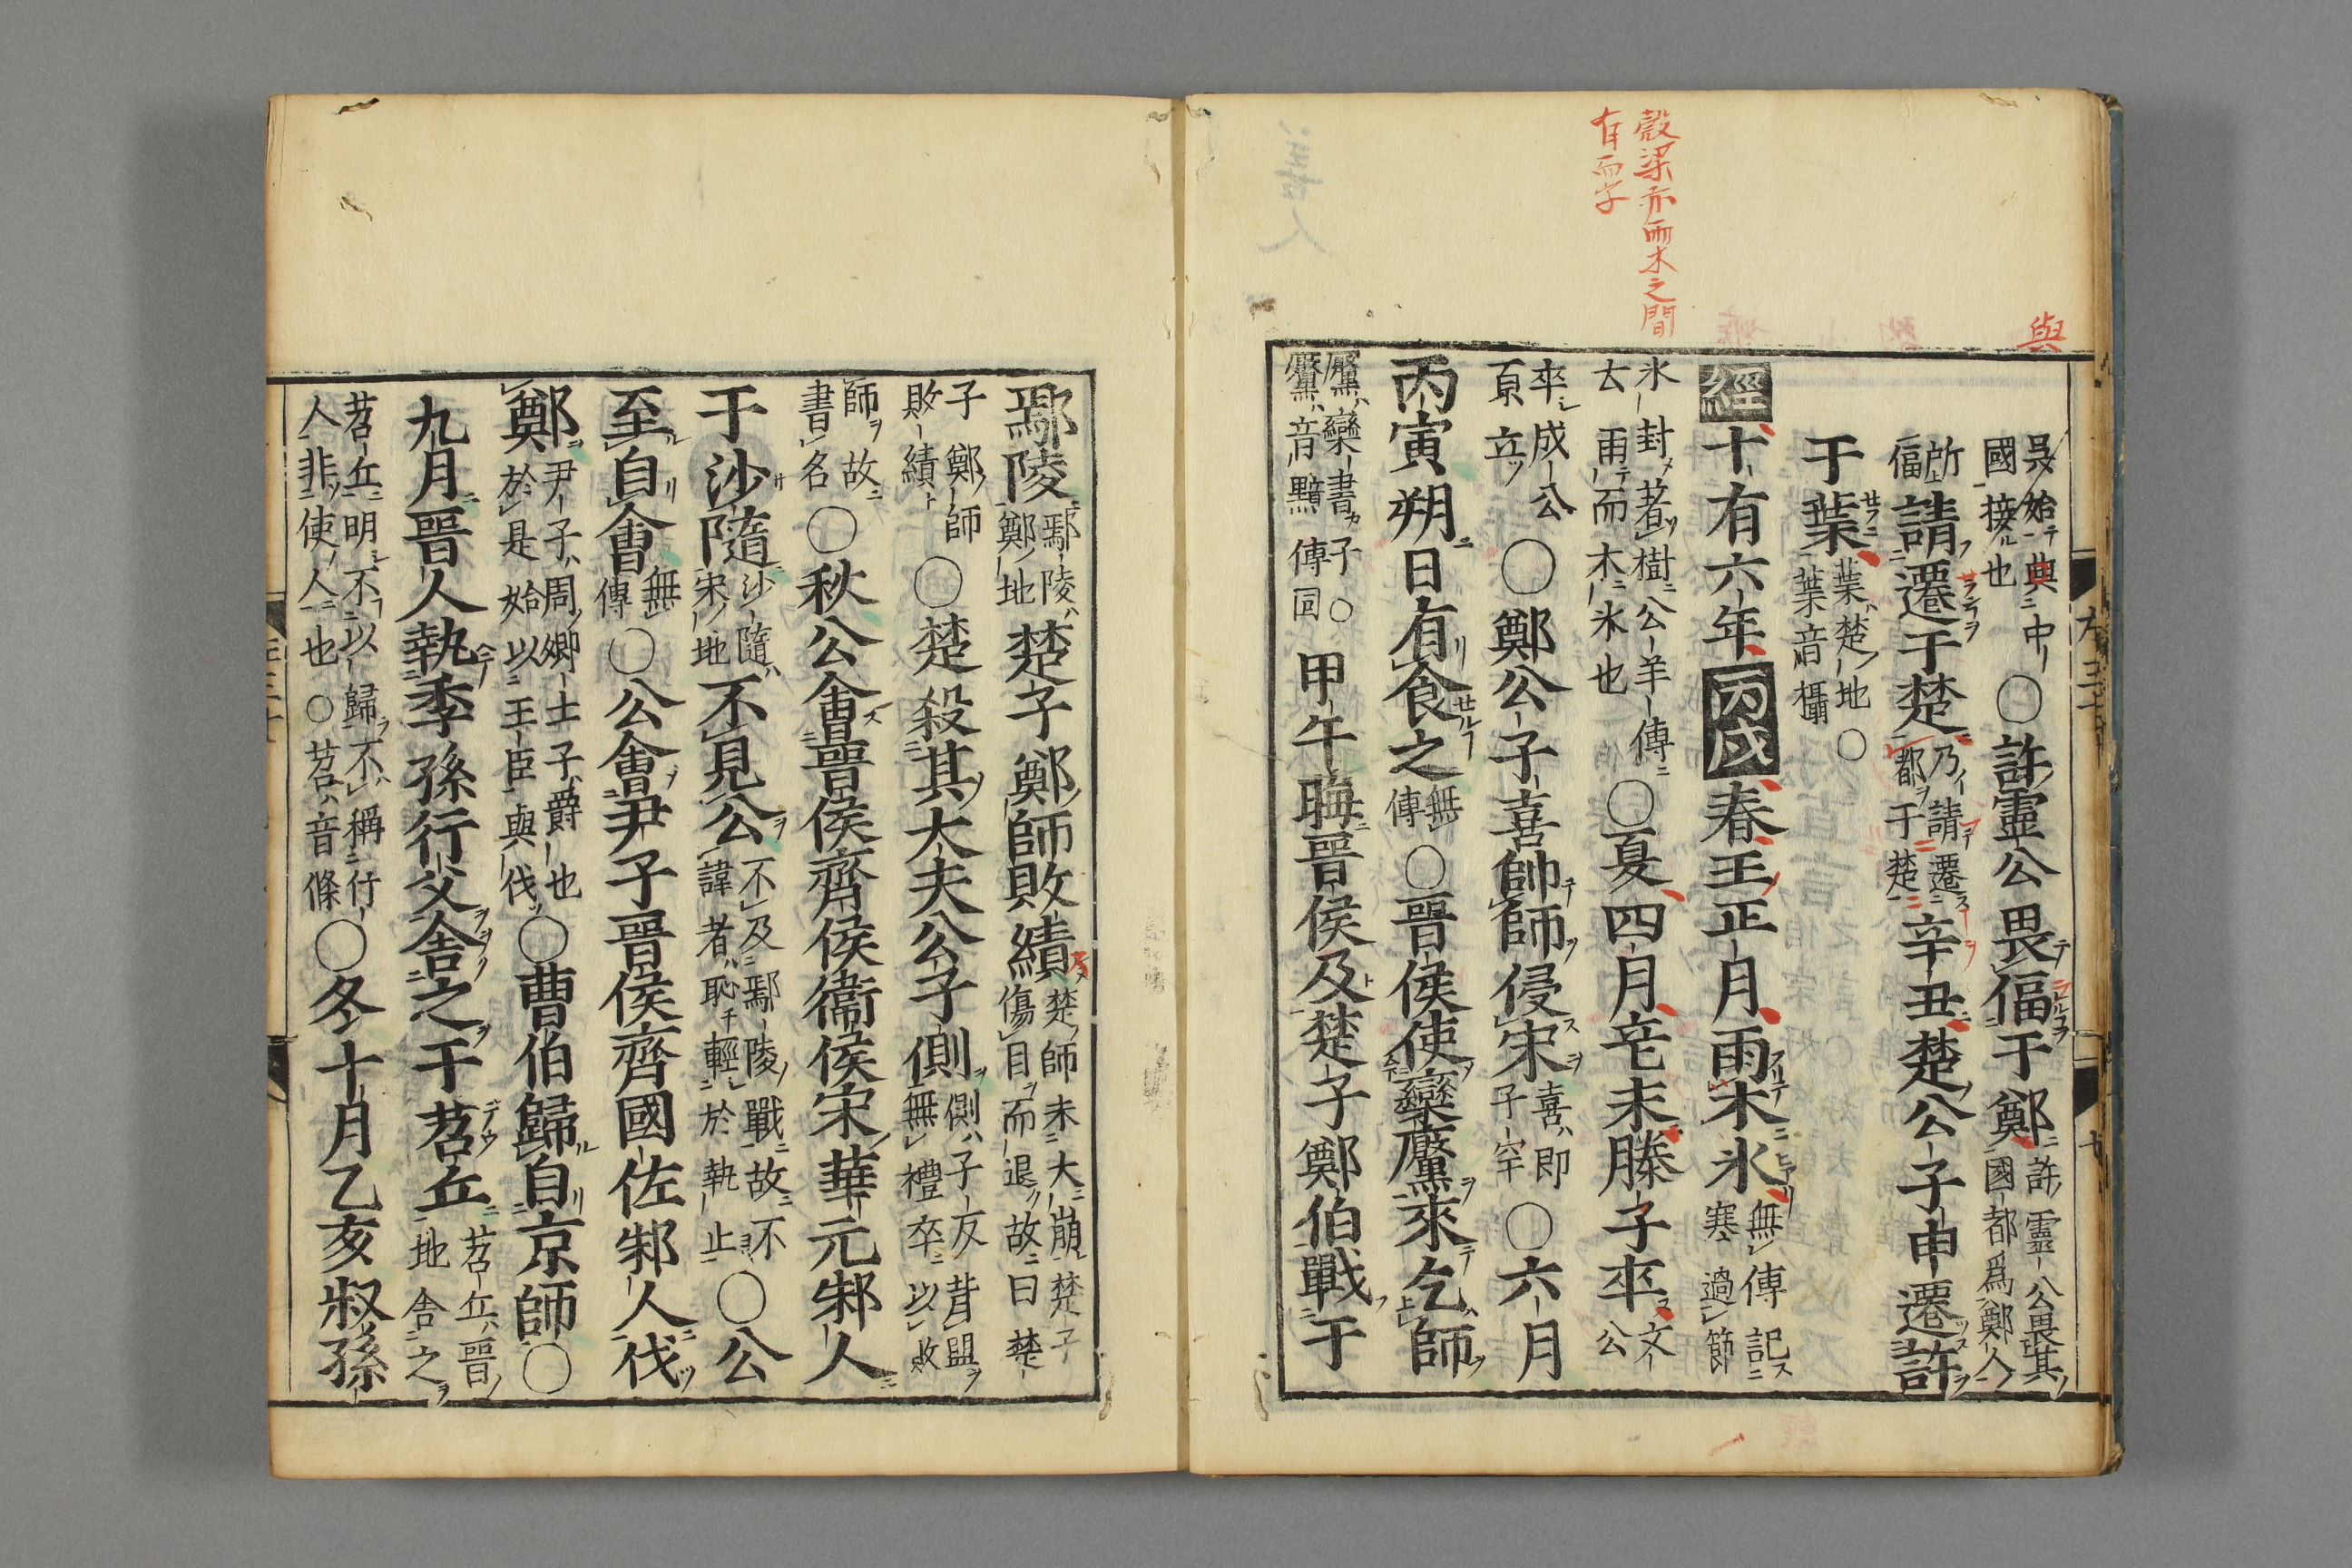 與
穀梁亦雨木之間
有而字
吳始與中
國接也○許靈公畏偪于鄭許靈公畏其
國都爲鄭人
所
偪請遷于楚乃請遷
都于楚辛丑楚公子申遷許
于葉葉楚地○
葉音攝
經十有六年丙戌春王正月雨木冰無傳記
寒過節
冰封著樹公羊傳
去雨而木冰也○夏四月辛未滕子卒文公
卒成公
原立○鄭公子喜帥師侵宋喜即
子罕○六月
丙寅朔日有食之無
傳○晉侯使欒黶來乞師
黶欒書子○
黶音黯傳同甲午晦晉侯及楚子鄭伯戰于
鄢陵鄢陵
鄭地楚子鄭師敗績楚師未大崩楚子
傷目而退故曰楚
子鄭師
敗績○楚殺其大夫公子側側子反背盟
無禮卒以敗
師故
書名○秋公會晉侯齊侯衞侯宋華元邾人
于沙隨沙隨
宋地不見公不及鄢陵戰故不
諱者恥輕於執止○公
至自會無
傳○公會尹子晉侯齊國佐邾人伐
鄭尹子周卿士子爵也
於是始以王臣與伐○曹伯歸自京師○
九月晉人執季孫行父舍之于苕丘苕丘晉
地舍之
苕丘明不以歸不稱行
人非使人也○苕音條○冬十月乙亥叔孫